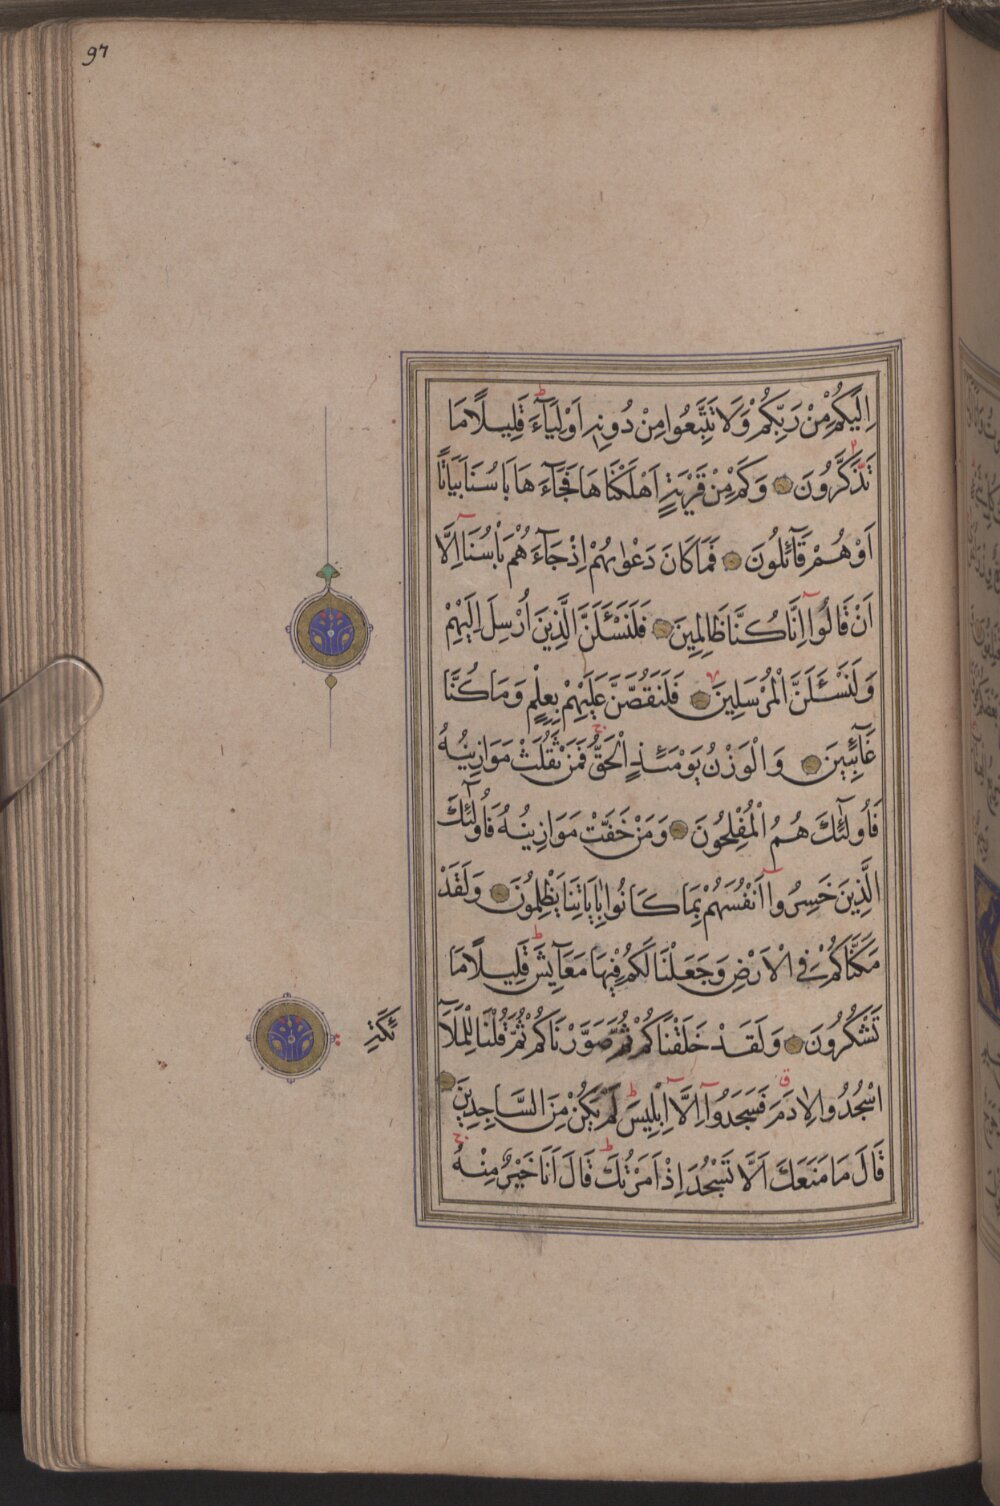 97
اِلَيْكُمْ مِنْ رَبِّكُمْ وَلَا تَتَّبِعُوا مِنْ دُونِهِ اَوْلِيَآءَ قَلِيلًا مَا
تَذَّكَّرُونَ وَكَمْ مِنْ قَرْيَةٍ اَهْلَكْنَاهَا فَجَآءَهَا بَاْسُنَا بَيَاتًا
اَوْ هُمْ قَآئِلُونَ فَمَا كَانَ دَعْوٰيهُمْ اِذْ جَآءَهُمْ بَاْسُنَآ اِلَّا
اَنْ قَالُوآ اِنَّا كُنَّا ظَالِمِينَ فَلَنَسْـَٔلَنَّ الَّذِينَ اُرْسِلَ اِلَيْهِمْ
وَلَنَسْـَٔلَنَّ الْمُرْسَلِينَ فَلَنَقُصَّنَّ عَلَيْهِمْ بِعِلْمٍ وَمَا كُنَّا
غَآئِبِينَ وَالْوَزْنُ يَوْمَئِذٍ الْحَقُّ فَمَنْ ثَقُلَتْ مَوَازِينُهُ
فَاُولٰٓئِكَ هُمُ الْمُفْلِحُونَ وَمَنْ خَفَّتْ مَوَازِينُهُ فَاُولٰٓئِكَ
الَّذِينَ خَسِرُوآ اَنْفُسَهُمْ بِمَا كَانُوا بِاٰيَاتِنَا يَظْلِمُونَ وَلَقَدْ
مَكَّنَّاكُمْ فِي الْاَرْضِ وَجَعَلْنَا لَكُمْ فِيهَا مَعَآيِشَ قَلِيلًا مَا
تَشْكُرُونَ وَلَقَدْ خَلَقْنَاكُمْ ثُمَّ صَوَّرْنَاكُمْ ثُمَّ قُلْنَا لِلْمَلَآ
ئِكَةِ
اسْجُدُوا لِاٰدَمَ فَسَجَدُوآ اِلَّآ اِبْلِيسَ لَمْ يَكُنْ مِنَ السَّاجِدِينَ
قَالَ مَا مَنَعَكَ اَلَّا تَسْجُدَ اِذْ اَمَرْتُكَ قَالَ اَنَا خَيْرٌ مِنْهُ